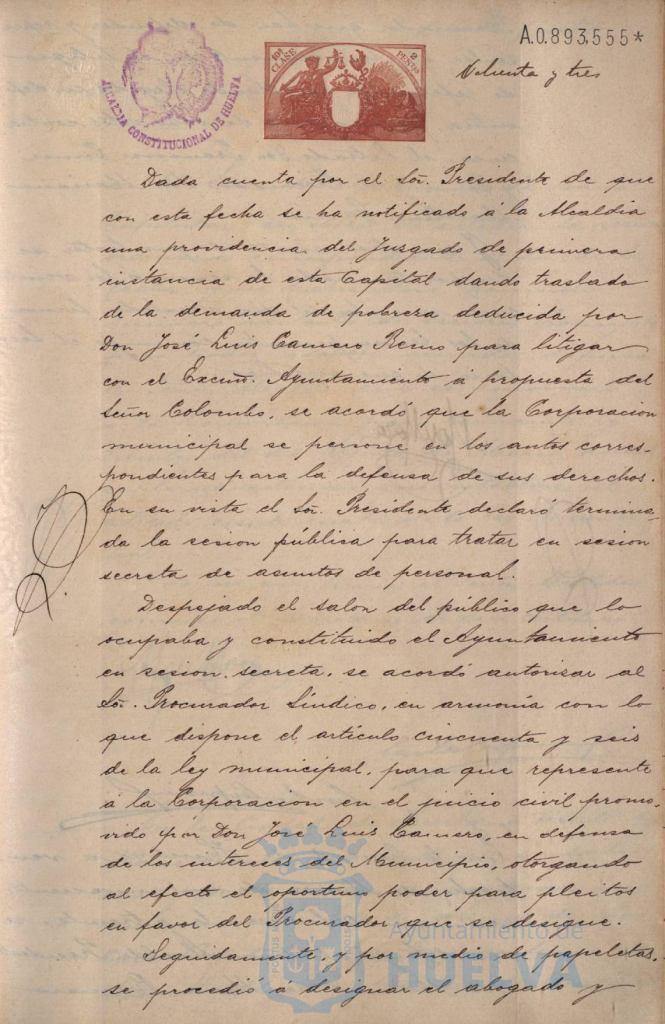 A.0.893,555*
10ª CLASE
2 PUNTO
ALCALDIA CONSTITUCIONAL DE HUELVA
y tres
Dada cuenta por el Sor. Presidente de que
con esta fecha se ha notificado á la Alcaldia
una providencia del Juzgado de primera
instancia de esta Capital dando traslado
de la demanda de pobreza deducida por
Don José Luis Camero Reino para litigar
con el Excmo. Ayuntamiento á propuesta del
Señor Colombo, se acordó que la Corporacion
municipal se persone en los autos corres-
pondientes para la defensa de sus derechos.
En su vista el Sor. Presidente declaró termina-
da la sesion pública para tratar en sesion
secreta de asuntos de personal.
Despejado el salon del público que lo
ocupaba y constituido el Ayuntamiento
en sesion secreta, se acordó autorisar al
Sor. Procurador Síndico, en armonía con lo
que dispone el artículo cincuenta y seis
de la ley municipal, para que represente
á la Corporacion en el juicio civil promo-
vido por Don José Luis Camero, en defensa
de los intereses del Municipio, otorgando
al efecto el oportuno poder para pleitos
en favor del Procurador que se designe.
Seguidamente, y por medio de papeletas,
se procedió á designar el abogado y
Ayuntamiento de
HUELVA